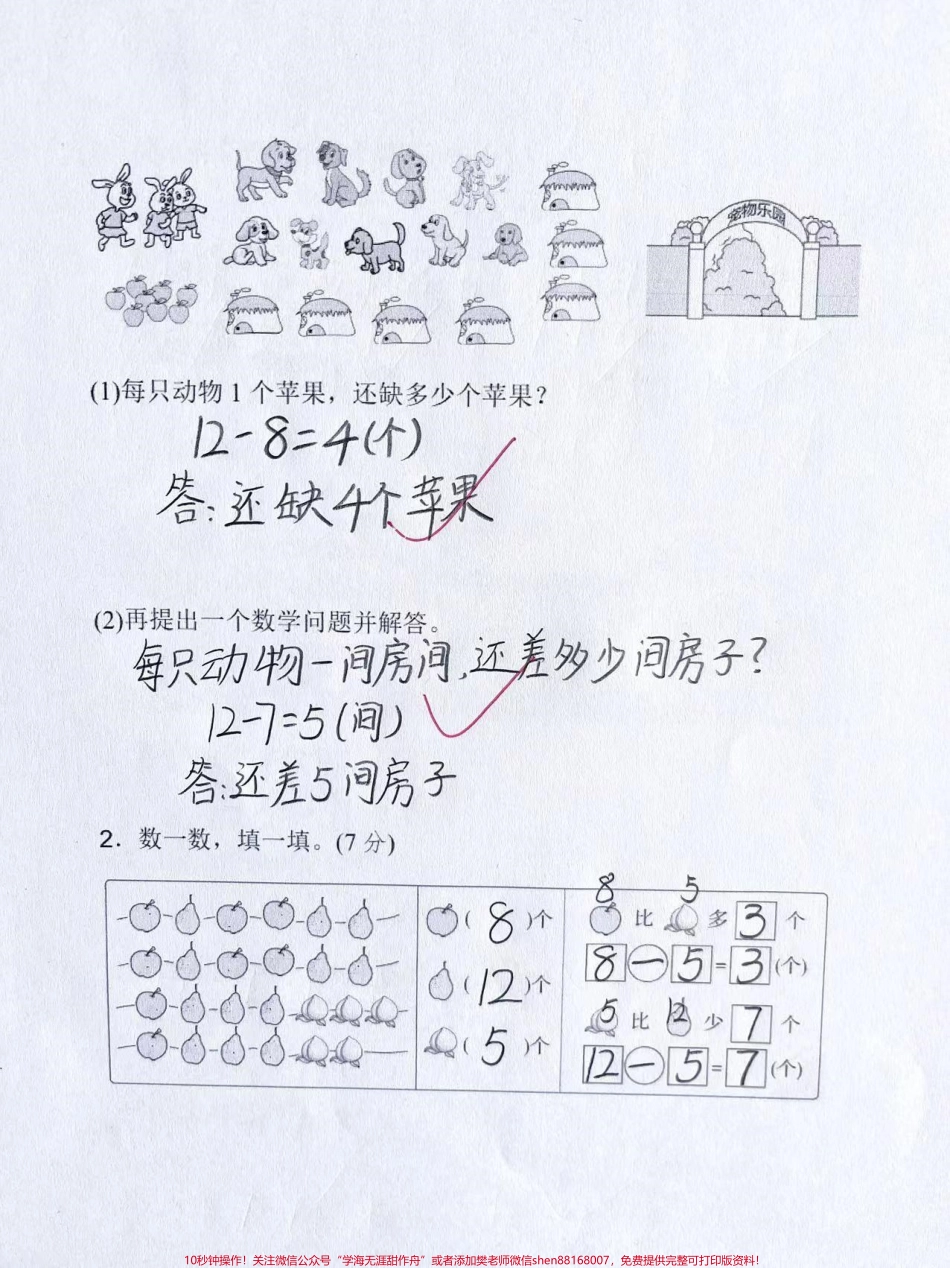 宠物乐园
(1)每只动物1个苹果，还缺多少个苹果？
12-8=4(个)
答:还缺4个苹果
(2)再提出一个数学问题并解答。
每只动物一间房间,还差多少间房子?
12-7=5(间)
答:还差5间房子
2. 数一数，填一填。(7分)
8 5
( 8 )个 比 多 3 个
8-5=3(个)
( 12 )个
5 比 12 少 7 个
( 5 )个
12-5=7(个)
10秒钟操作！关注微信公众号“学海无涯甜作舟”或者添加樊老师微信shen88168007，免费提供完整可打印版资料！